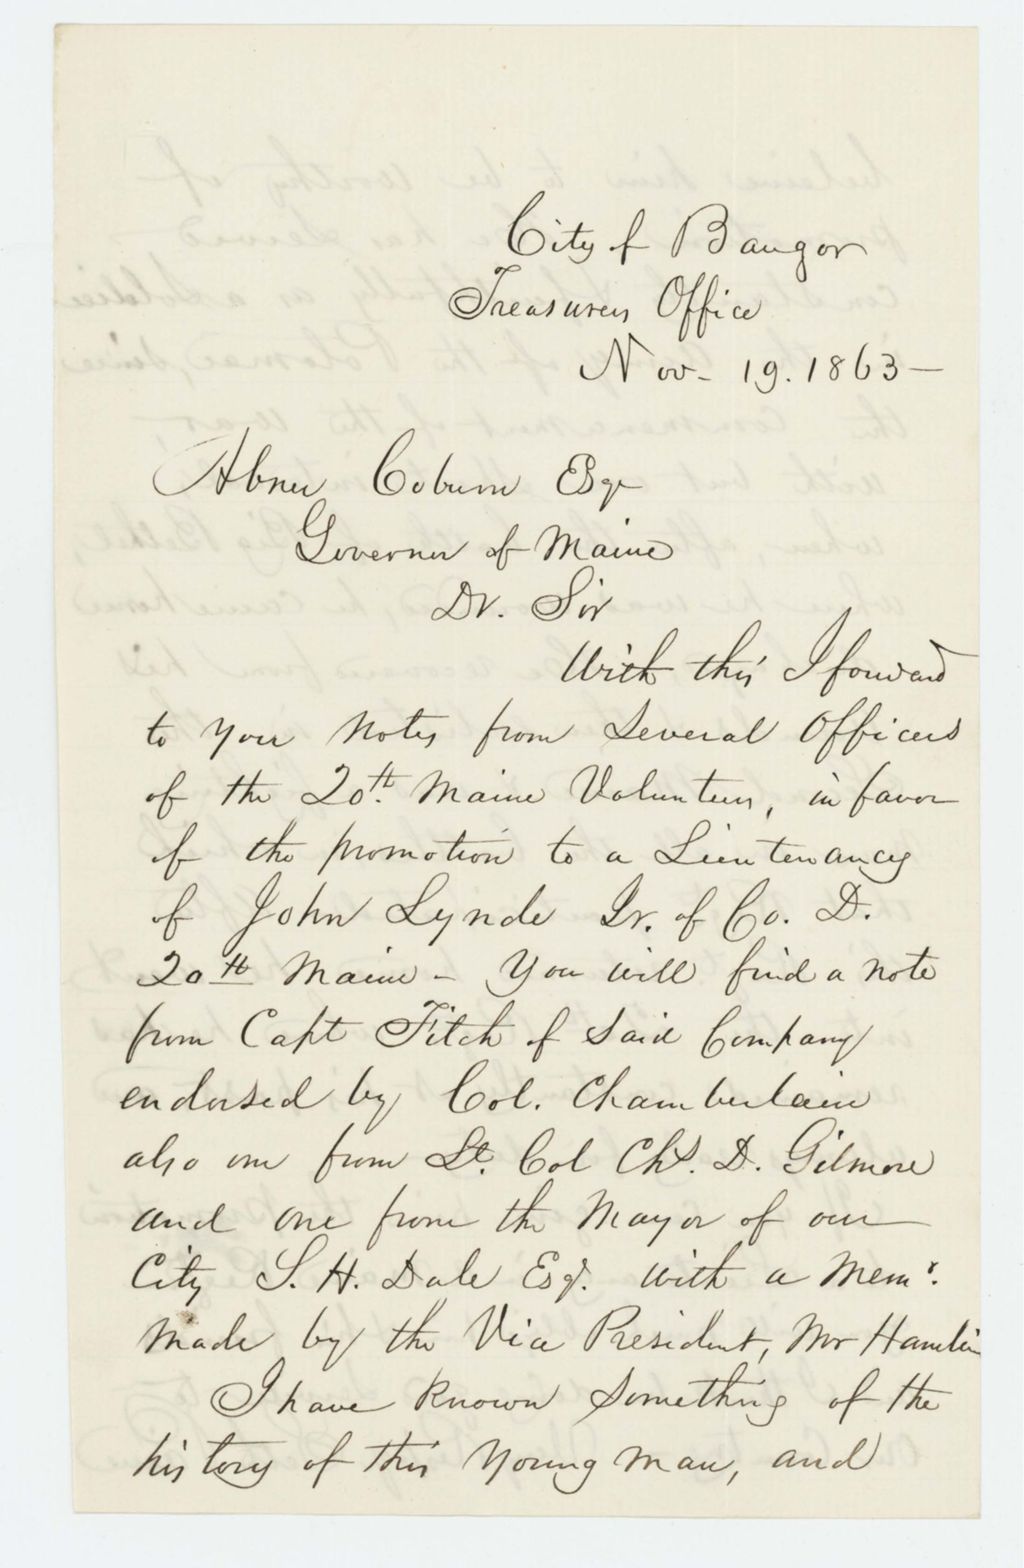 City of Bangor
Treasurers Office
Nov- 19. 1863-
Abner Coburn Esqr
Governor of Maine
Dr. Sir
With this I forward
to your Notes from Several Officers
of the 20th. Maine Volunteers, in favor
of the promotion to a Lieutenancy
of John Lynde Jr. of Co. D.
20th Maine - You will find a note
from Capt Fitch of Said Company
endorsed by Col. Chamberlain
also one from Lt. Col Chs. D. Gilmore
and one from the Mayor of our
City S. H. Dale Esqr. with a Memr.
made by the Vice President, Mr Hamlin
I have known Something of the
history of this Young Man, and